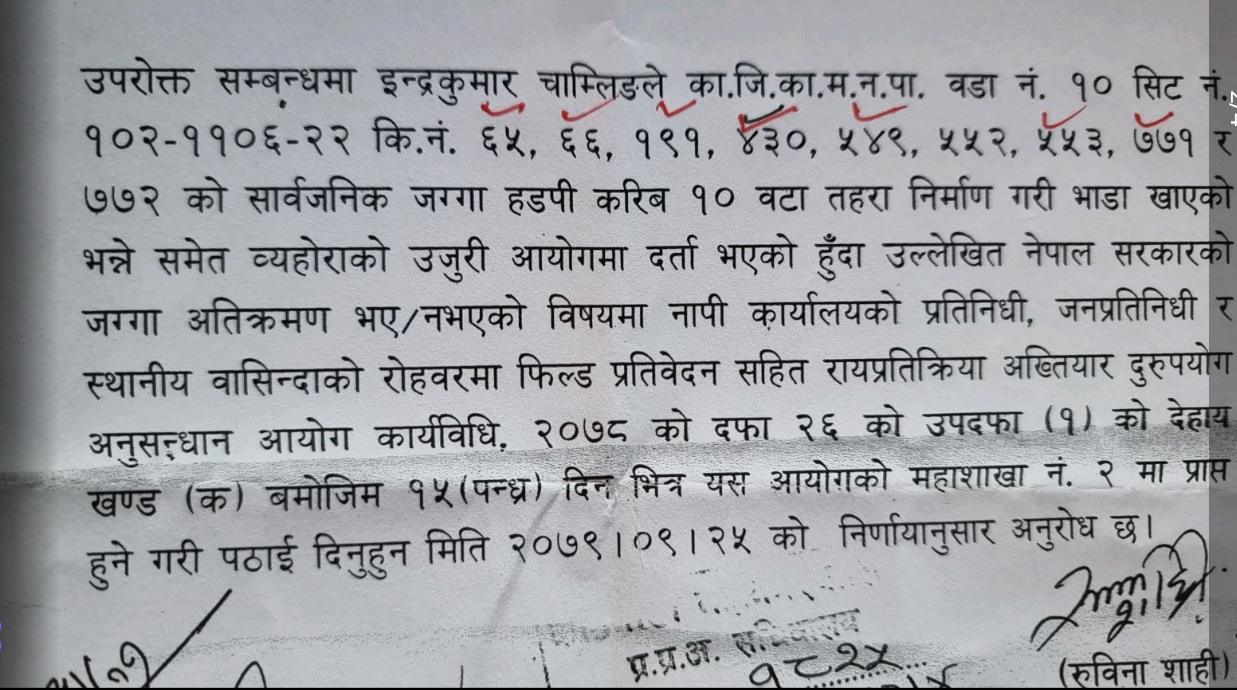 उपरोक्त सम्बन्धमा इन्द्रकुमार चाम्लिङले का.जि.का.म.न.पा. वडा नं. १० सिट नं.
१०२-११०६-२२ कि.नं. ६५, ६६, १९१, ४३०, ५४९, ५५२, ५५३, ७७१ र
७७२ को सार्वजनिक जग्गा हडपी करिब १० वटा तहरा निर्माण गरी भाडा खाएको
भन्ने समेत व्यहोराको उजुरी आयोगमा दर्ता भएको हुँदा उल्लेखित नेपाल सरकारको
जग्गा अतिक्रमण भए/नभएको विषयमा नापी कार्यालयको प्रतिनिधी, जनप्रतिनिधी र
स्थानीय वासिन्दाको रोहवरमा फिल्ड प्रतिवेदन सहित रायप्रतिक्रिया अख्तियार दुरुपयोग
अनुसन्धान आयोग कार्यविधि, २०७८ को दफा २६ को उपदफा (१) को देहाय
खण्ड (क) बमोजिम १५(पन्ध्र) दिन भित्र यस आयोगको महाशाखा नं. २ मा प्राप्त
हुने गरी पठाई दिनुहुन मिति २०७९।०९।२५ को निर्णयानुसार अनुरोध छ।
प्र.प्र.अ. सचिवालय
१८२५
(रुविना शाही)